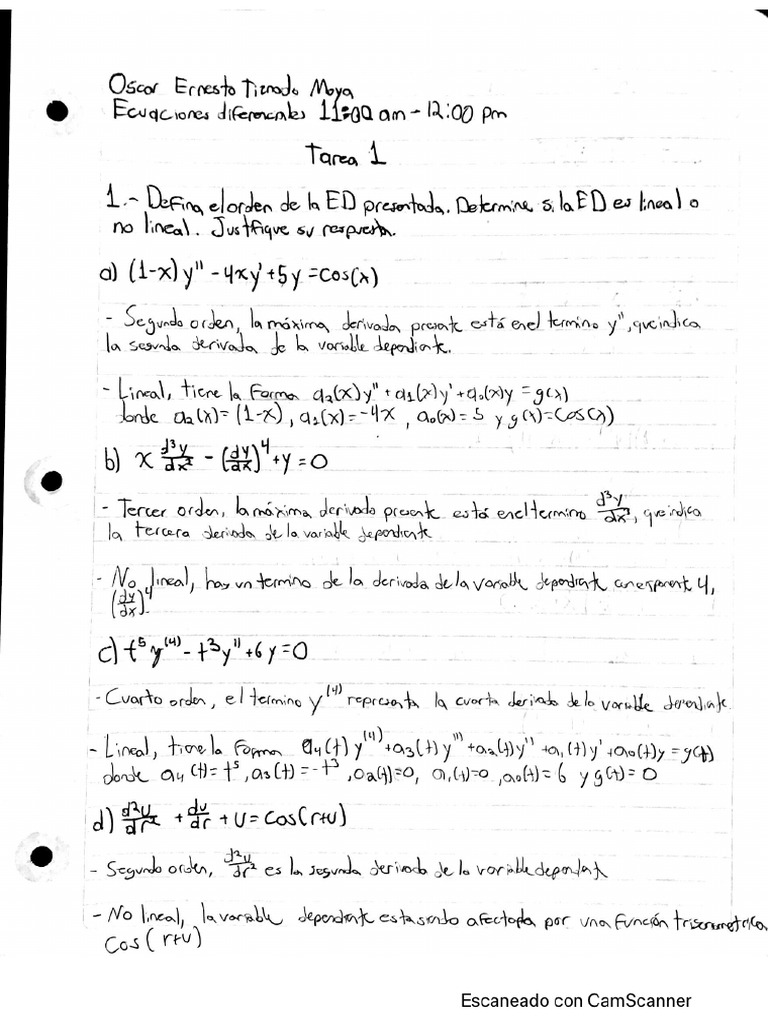 Oscar Ernesto Tiznado Moya
Ecuaciones diferenciales 11:00 am - 12:00 pm
Tarea 1
1.- Defina el orden de la ED presentada. Determine si la ED es lineal o
no lineal. Justifique su respuesta.
a) (1-x) y'' - 4xy' + 5y = cos(x)
- Segundo orden, la máxima derivada presente está en el termino y'', que indica
la segunda derivada de la variable dependiente.
- Lineal, tiene la forma a₂(x)y'' + a₁(x)y' + a₀(x)y = g(x)
donde a₂(x) = (1-x), a₁(x) = -4x, a₀(x) = 5 y g(x) = cos(x)
b) x d³y/dx³ - (dy/dx)⁴ + y = 0
- Tercer orden, la máxima derivada presente está en el termino d³y/dx³, que indica
la tercera derivada de la variable dependiente
- No lineal, hay un termino de la derivada de la variable dependiente con exponente 4,
(dy/dx)⁴.
c) t⁵y⁽⁴⁾ - t³y'' + 6y = 0
- Cuarto orden, el termino y⁽⁴⁾ representa la cuarta derivada de la variable dependiente.
- Lineal, tiene la forma a₄(t)y⁽⁴⁾ + a₃(t)y''' + a₂(t)y'' + a₁(t)y' + a₀(t)y = g(t)
donde a₄(t) = t⁵, a₃(t) = -t³, a₂(t) = 0, a₁(t) = 0, a₀(t) = 6 y g(t) = 0
d) d²u/dr² + du/dr + u = cos(r+u)
- Segundo orden, d²u/dr² es la segunda derivada de la variable dependiente
- No lineal, la variable dependiente esta siendo afectada por una función trigonometrica,
Cos(r+u)
Escaneado con CamScanner